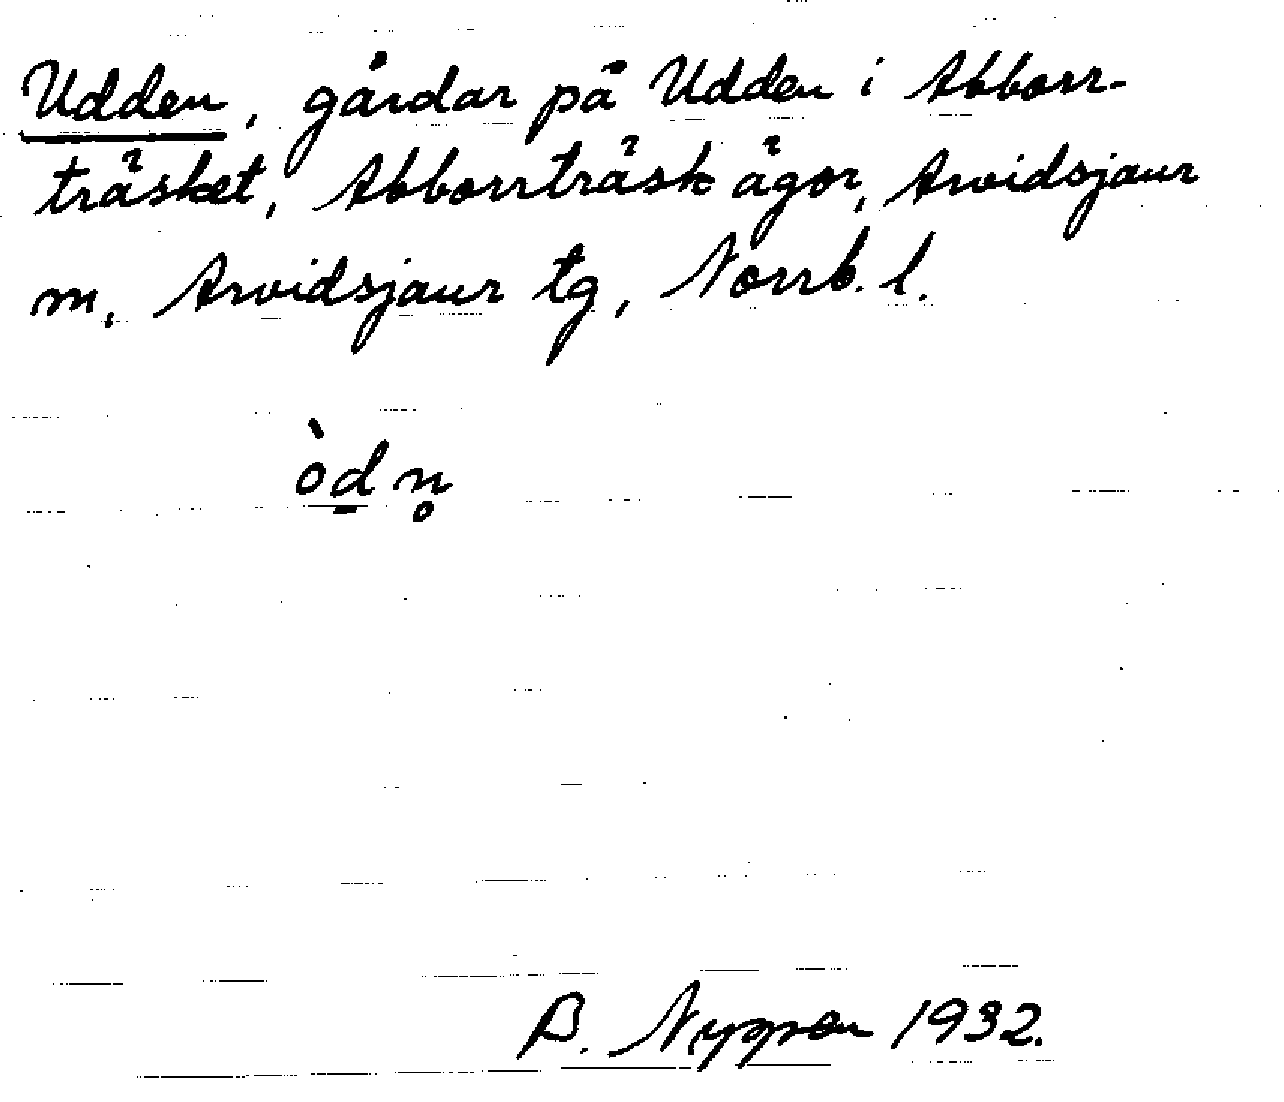 Udden, gårdar på Udden i Abborr-
träsket, Abborrträsk ägor, Arvidsjaur
m, Arvidsjaur tg, Norrb. l.
òd̲n̥
B. 1932.